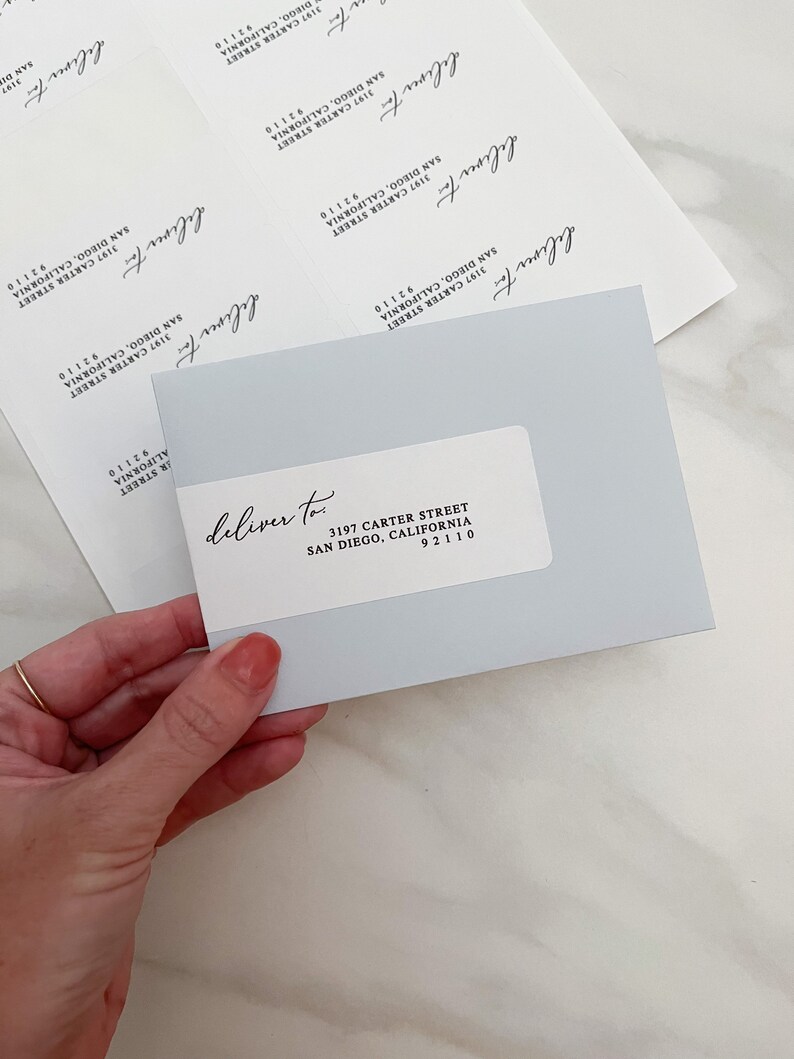 deliver to:
3197 CARTER STREET
SAN DIEGO, CALIFORNIA
92110
deliver to:
3197
SAN
CARTER STREET
SAN DIEGO, CALIFORNIA
92110
deliver to:
3197 CARTER STREET
SAN DIEGO, CALIFORNIA
92110
deliver to:
3197 CARTER STREET
SAN DIEGO, CALIFORNIA
92110
deliver to:
3197 CARTER STREET
SAN DIEGO, CALIFORNIA
92110
deliver to:
3197 CARTER STREET
SAN DIEGO, CALIFORNIA
92110
deliver to:
3197 CARTER STREET
SAN DIEGO, CALIFORNIA
92110
STREET
CALIFORNIA
92110